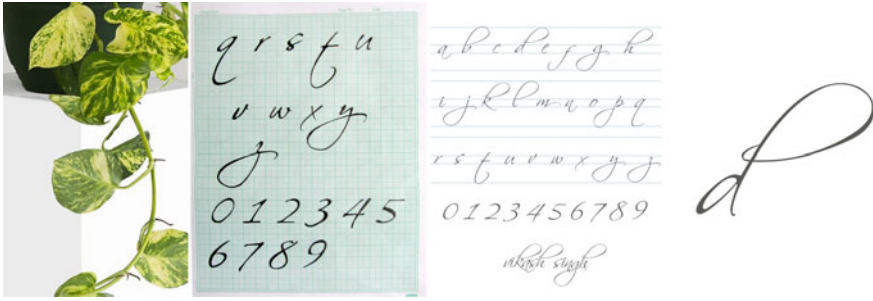 q r s t u
v w x y
z
0 1 2 3 4 5
6 7 8 9
a b c d e f g h
i j k l m n o p q
r s t u v w x y z
0 1 2 3 4 5 6 7 8 9
vikash singh
d